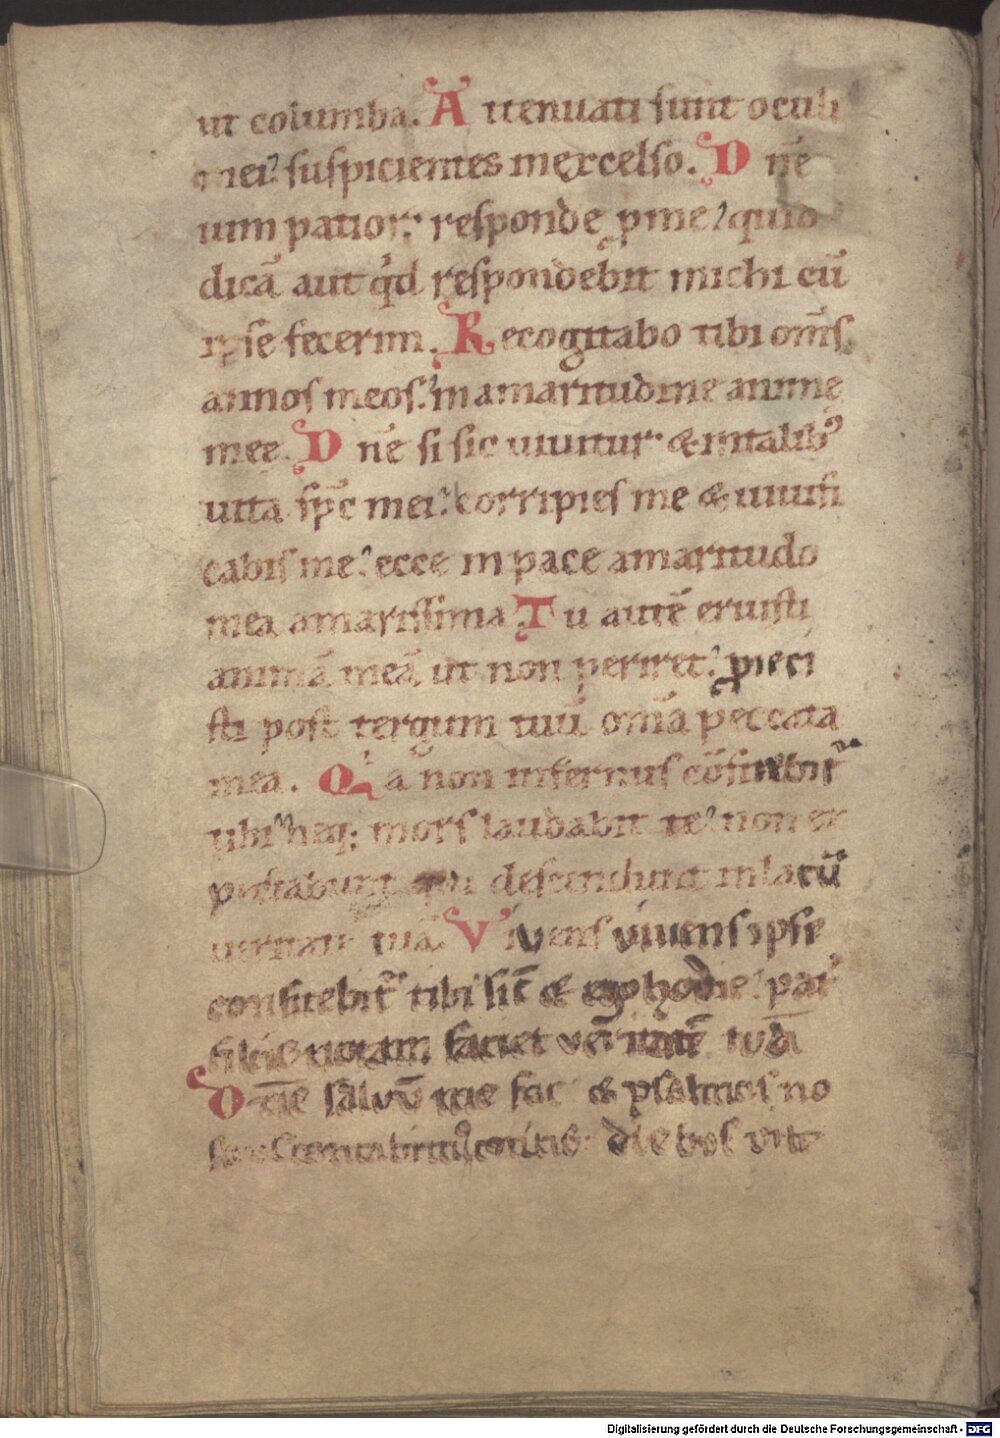 ut columba. Attenuati sunt oculi
mei? suspicientes in excelso. Dn̄e
uim patior: responde ꝓ me? quid
dicā aut qͥd respondebit michi cū
ipse fecerim. Recogitabo tibi om̄s
annos meos? in amaritudine anime
mee. Dn̄e si sic uiuitur & in talibꝰ
uita sp̄c mei? corripies me & uiuifi
cabis me? ecce in pace amaritudo
mea amarissima Tu autē eruisti
animā meā ut non periret? ꝓieci
sti post tergum tuū om̄a peccata
mea. Qͥa non infernus cōfitebit᷑
tibi neq; mors laudabit te? non ex
pectabunt qui descendunt in lacū
ueritatē tuā. Viuens viuens ipse
confitebit᷑ tibi sic̄ & ego hodie? pat᷑
filiis notam faciet veritatē tuā
Dn̄e salvū me fac & psalmos no
stros cantabimus cunctis diebus vite